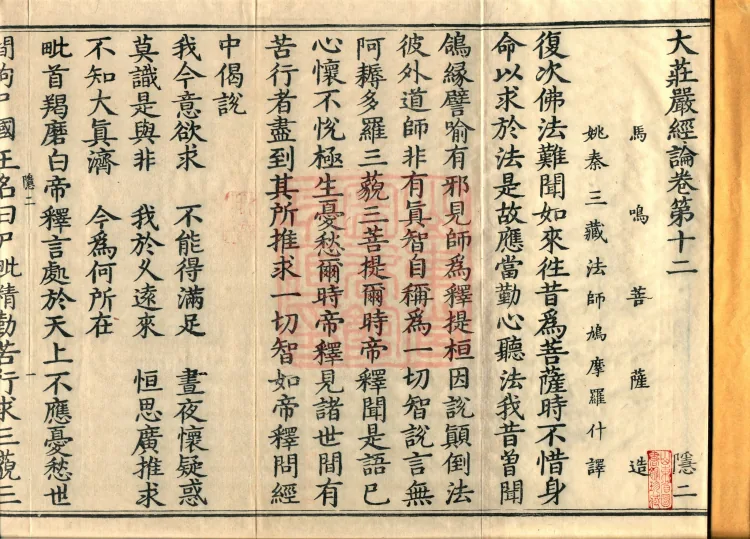 大莊嚴經論卷第十二
隱二
馬鳴菩薩造
姚秦三藏法師鳩摩羅什譯
復次佛法難聞如來徃昔爲菩薩時不惜身
命以求於法是故應當勤心聽法我昔曾聞
鴿緣譬喻有邪見師爲釋提桓因說顛倒法
彼外道師非有真智自稱爲一切智說言無
阿耨多羅三藐三菩提爾時帝釋聞是語已
心懷不恱極生憂愁爾時帝釋見諸世間有
苦行者盡到其所推求一切智如帝釋問經
中偈說
我今意欲求 不能得滿足 晝夜懷疑惑
莫識是與非 我於久遠來 恒思廣推求
不知大真濟 今爲何所在
毗首羯磨白帝釋言處於天上不應憂愁世
隱二 一
間拘尸國王名曰尸毗精勤苦行求三藐三